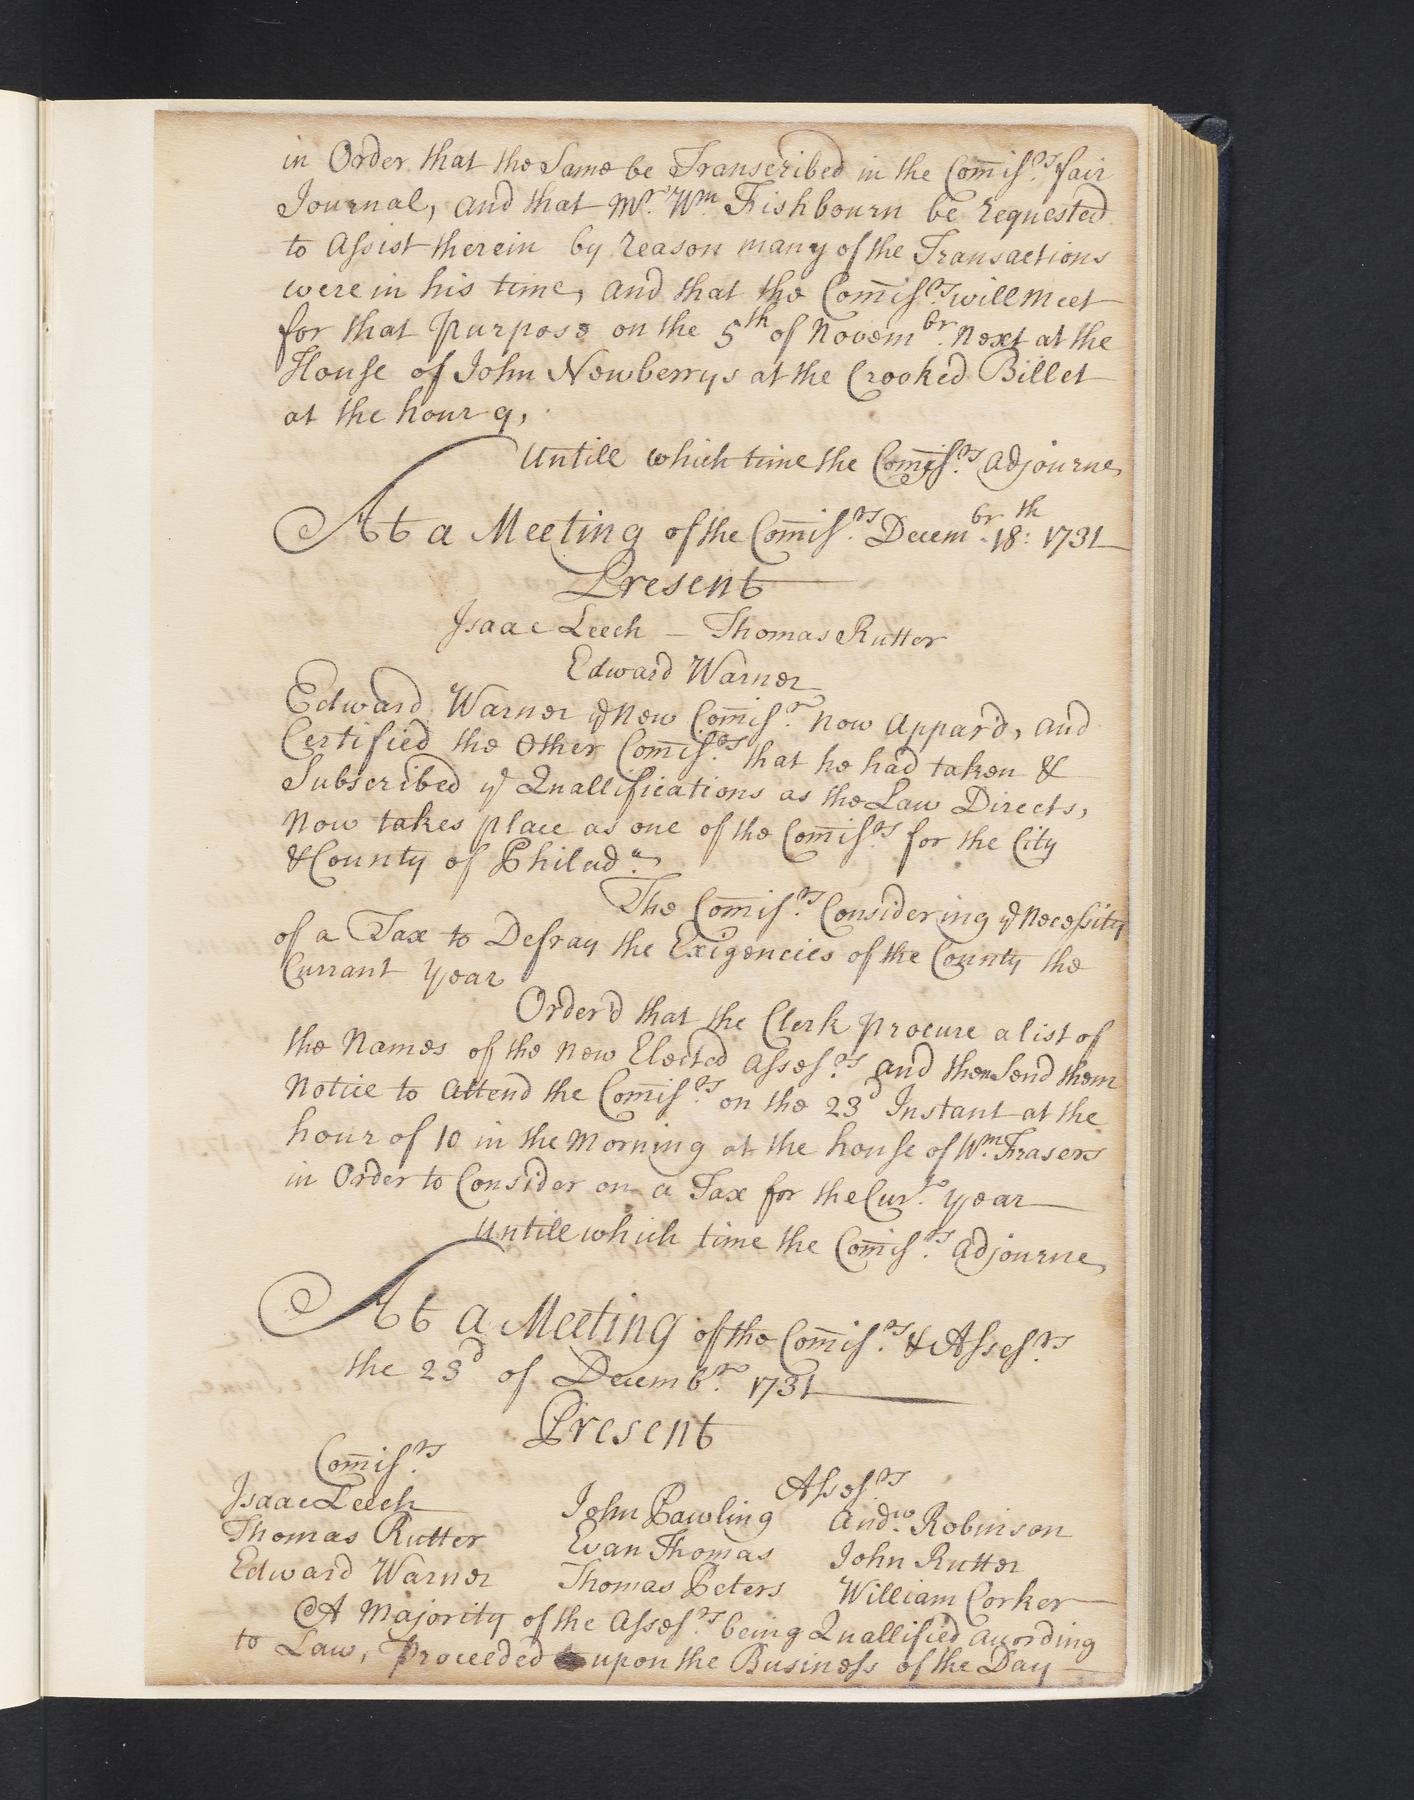 in Order that the Same be Transcribed in the Com̄iss.rs fair
Journal, and that Mr. Wm. Fishbourn be requested
to Assist therein by reason many of the Transactions
were in his time, and that the Com̄iss.rs will meet
for that purpose on the 5th of Novembr. next at the
House of John Newberrys at the Crooked Billet
at the hour 9,
Untill which time the Com̄iss.rs adjourne
At a Meeting of the Com̄iss.rs Decembr. 18th: 1731
Present
Isaac Leech – Thomas Rutter
Edward Warner
Edward Warner ye New Com̄iss.r now Appard, and
Certified the Other Com̄iss.rs that he had taken &
Subscribed ye Quallifications as the Law Directs,
Now takes place as one of the Com̄iss.rs for the City
& County of Philad.a
The Com̄iss.rs Considering ye Necessity
of a Tax to Defray the Exigencies of the County the
Currant year
Order'd that the Clerk procure a list of
the Names of the New Elected Assess.rs and then Send them
Notice to Attend the Com̄iss.rs on the 23d Instant at the
hour of 10 in the Morning at the house of Wm. Frasers
in Order to Consider on a Tax for the Cur.t year
Untill which time the Com̄iss.rs adjourne
At a Meeting of the Com̄iss.rs & Assess.rs
the 23d of Decemb.r 1731
Present
Com̄iss.rs
Assess.rs
Isaac Leech John Pawling Andw. Robinson
Thomas Rutter Evan Thomas John Rutter
Edward Warner Thomas Peters William Corker
A Majority of the Assess.rs being Quallified according
to Law, Proceeded upon the Business of the Day